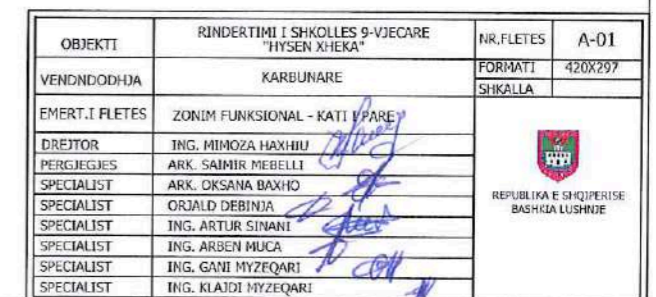 OBJEKTI
RINDERTIMI I SHKOLLES 9-VJECARE
"HYSEN XHEKA"
NR.FLETES
A-01
VENDNDODHJA
KARBUNARE
FORMATI
420X297
SHKALLA
EMERT.I FLETES
ZONIM FUNKSIONAL - KATI I PARE
DREJTOR
ING. MIMOZA HAXHIU
PERGJEGJES
ARK. SAIMIR MEBELLI
SPECIALIST
ARK. OKSANA BAXHO
SPECIALIST
ORJALD DEBINJA
SPECIALIST
ING. ARTUR SINANI
SPECIALIST
ING. ARBEN MUCA
SPECIALIST
ING. GANI MYZEQARI
SPECIALIST
ING. KLAJDI MYZEQARI
REPUBLIKA E SHQIPERISE
BASHKIA LUSHNJE